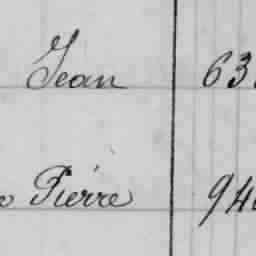 Jean 63
Pierre 94